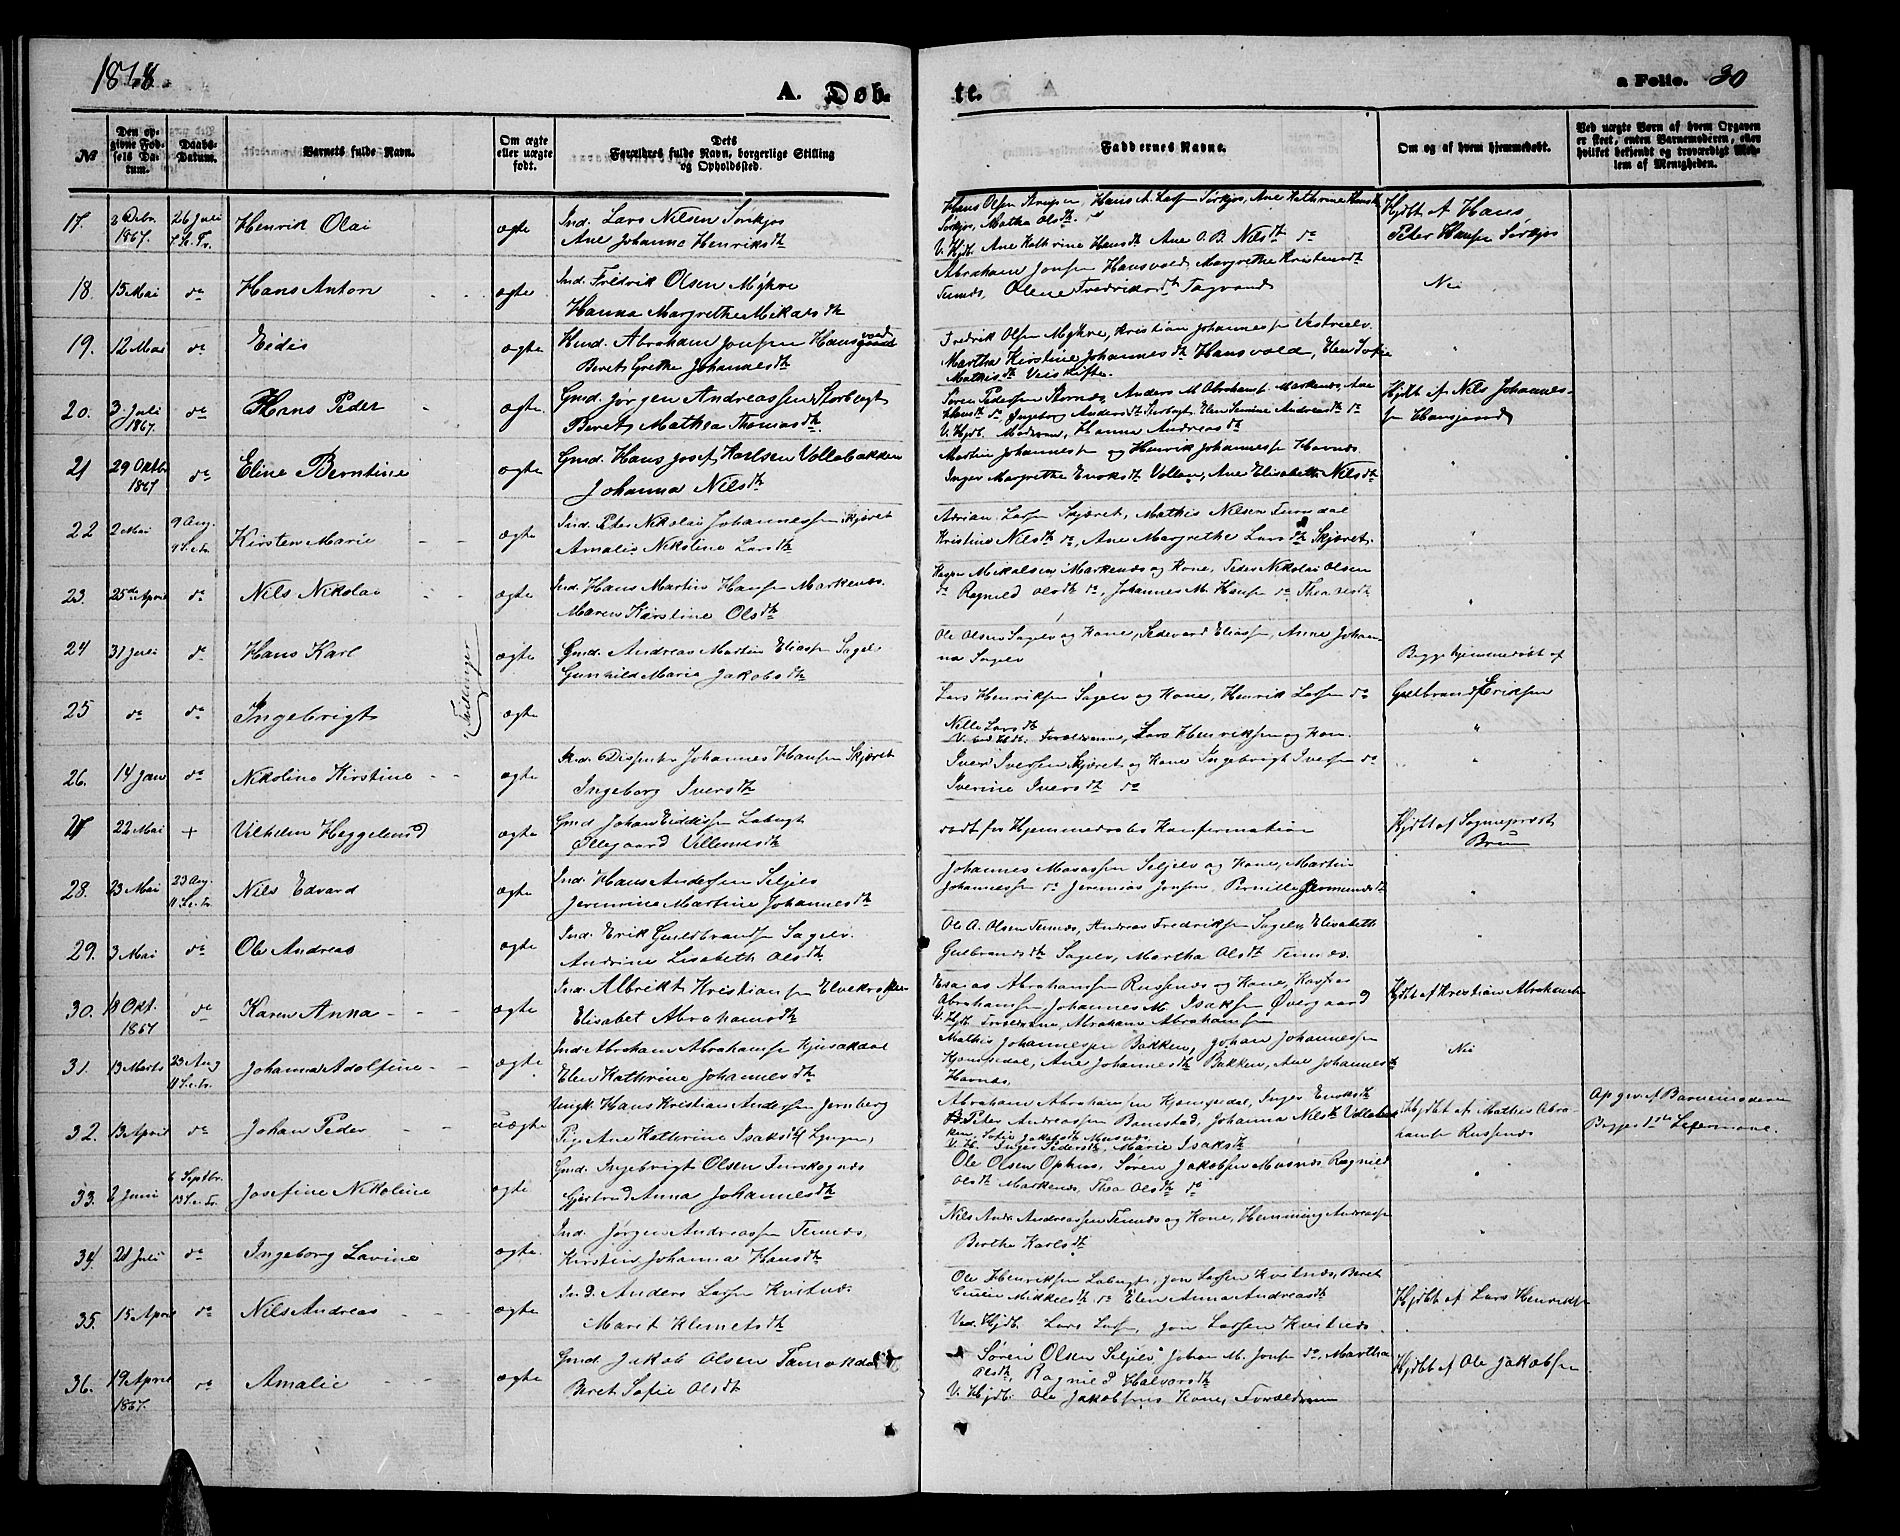 1868.
A. Døb-
te.
a Folio. 30
№
Den op-
givne Fød-
sels Da-
tum.
Daabs-
Datum.
Barnets fulde Navn.
Om ægte
eller uægte
født.
Dets
Forældres fulde Navn, borgerlige Stilling
og Opholdssted.
Faddernes Navne.
Om og af hvem hjemmedøbt.
Ved uægte Børn af hvem Opgaven
er skeet, enten Barnemoderen, eller
hvilket bekjendt og troværdigt Med-
lem af Menigheden.
17. 3 Debr. 1867. 26 Juli 7 S. Tr. Henrik Olai ægte
Ind. Lars Nilsen Sørkjos
Ane Johanna Henriksdtr
Hans Olsen Hansen A. Larsen Sørkjos, Ane Kathrine Hansdtr
Sørkjos, Mathea Olsdtr.
V. Hjdb. Ane Kathrine Hansdtr Ane O. B. Nilsdtr do
Hjdbt af Hans
Peter Hansen Sørkjos
18. 15 Mai do Hans Anton ægte
Ind. Fredrik Olsen Mykre
Hanna Margrethe Mikalsdtr
Abraham Jonsen Hansvold, Margrethe Kristensdtr
Temnes, Oline Fredriksdtr Tagvand
Nei
19. 12 Mai do Eidis ægte
Kmd. Abraham Jonsen Hansvold
Beret Grethe Johannesdtr
Fredrik Olsen Mykre, Kristian Johannessen Vestreelv.
Martha Kirstine Johannesdtr Hansvold, Elen Sofie
Mathisdtr Veiskifte.
"
20. 3 Juli 1867. do Hans Peder ægte
Gmd. Jørgen Andreassen Storbugt
Beret Mathea Thomasdtr.
Søren Pedersen Stornes, Anders M Abrahams. Markenes, Ane
Hansdtr do Ingeborg Andersdtr Storbugt Elen Semine Andreasdtr do
V. Hjdb. Moderen, Hanna Andreasdtr
Hjdbt af Nils Johannes-
sen Hansgaard
21 29 Oktbr 1867 do Eline Berntine ægte
Gmd. Hans Josef Karlsen Vollabakken
Johanna Nilsdtr
Martin Johannessen og Henrik Johannessen Havnes
Inger Margrethe Eriksdtr Vollan, Ane Elisabeth Nilsdtr
"
22 2 Mai 9 Aug. 9 S. e. Tr. Kirsten Marie ægte
Ind. Peter Nikolai Johannessen Skjæret
Amalie Nikoline Larsdtr
Adrian Larsen Skjæret, Mathis Nilsen Furudal
Kristine Nilsdtr do, Ane Margrethe Larsdtr Skjæret.
"
23. 25de April do Nils Nikolai ægte
Ind. Hans Martin Hansen Markenes.
Maren Kirstine Olsdtr
Kasper Mikalsen Markenes og Kone, Peder Nikolai Olsen
do Ragnild Olsdtr do, Johannes M. Hansen do Thea Olsdtr
"
24 31 Juli do Hans Karl ægte
Tvillinger
Gmd. Andreas Martin Eliasen Sagelv
Gunhild Maria Jakobsdtr
Ole Olsen Sagelv og Kone, Sedevard Eliassen, Anne Johan-
na Sagelv
Begge hjemmedøbt af
25 do do Ingebrigt ægte
Lars Henriksen Sagelv og Kone, Henrik Larsen do
Nille Larsdtr
V. bed. Hdb. Forældrene, Lars Henriksen og Kone.
Gulbrand Eriksen
"
26. 14 Jan do Nikoline Kirstine ægte
Ind. Disponer. Johannes Hansen Skjæret
Ingeborg Iversdtr
Iver Iversen Skjæret og Kone Ingebrigt Iversen do
Iverine Iversdtr do
"
27 22 Mai + Vilhelm Heggelund ægte
Gmd Johan Eidissen Labugt
Ollegaard Villumsdtr
død før Hjemmedaabs Konfirmation
Hjdbt af Sogneprest
Brun
28. 23 Mai 23 Aug. 11 S. e. Tr. Nils Edvard ægte
Ind. Hans Andersen Seljelv
Jerenrine Martine Johannesdtr
Johannes Mosassen Seljelv og Kone, Martin
Johannessen do Jeremias Jonsen, Pernille Jermundsdtr
"
29. 3 Mai do Ole Andreas ægte
Ind. Erik Guldbrandsen Sagelv.
Andrine Lisabeth Olsdtr
Ole A. Olsen Temnes, Andreas Fredriksen Sagelv Elisabeth
Gulbrandsdtr Sagelv, Martha Olsdtr Temnes.
"
30. 18 Okt. 1867 do Karen Anna ægte
Ind. Albrikt Kristiansen Elvekroken
Elisabet Abrahamsdtr
Esaias Abrahamsen Russenes og Kone, Kasper
Abrahamsen, Johannes M. Isaksen Øvergaard
V. Hjdb. Forældrene, Abraham Abrahamsen
Hjdbt af Kristian Abrahamsen
31. 13 Marts 23 Aug 11 S. e. Tr. Johanna Adolfine ægte
Ind. Abraham Abrahamsen Kjusakdal
Elen Kathrine Johannesdtr
Mathis Johannessen Bakken, Johan Johannessen
Kjomsedal, Ane Johannesdtr Bakken, Ane Johannesdtr
Havnes.
Nei
32. 13 April do Johan Peder uægte
Ungk. Hans Kristian Andersen Jernberg
Pige Ane Kathrine Isaksdtr Lyngen,
Abraham Abrahamsen Kjomsedal, Inger Eriksdtr
do Peter Andreassen Banestad, Johanna Nilsdtr Vollabak-
ken, Sofie Jakobsdtr Musnes
V. H. Inger Pedersdtr, Marie Isaksdtr
Hjdbt af Mathis Abra-
hamsen Russenes
Opgev. af Barnemoderen
Begges 1ste Leiermaal.
33. 2 Juni 6 Septbr. 13 S. e. Tr. Josefine Nikoline ægte
Gmd. Ingebrigt Olsen Furskognes
Gjertrud Anna Johannesdtr
Ole Olsen Ophus, Søren Jakobsen Musnes Ragnild
Olsdtr Markenes, Thea Olsdtr do
"
34. 21 Juli do Ingeborg Lavine ægte
Ind. Jørgen Andreassen Temnes,
Kirsten Johanna Hansdtr
Nils Andr. Andreassen Temnes og Kone, Hemming Andreassen
Berthe Karlsdtr
"
35. 15 April do Nils Andreas ægte
Ind. Anders Larsen Kvitnes.
Maret Klemetsdtr
Ole Henriksen Labugt, Jon Larsen Kvitnes, Beret
Mikkelsdtr do Elen Anna Andreasdtr
Ved. Hjdb. Lars Larsen, Jon Larsen Kvitnes.
Hjdbt af Lars Henriksen
36. 19 April 1867. do Amalie ægte
Gmd. Jakob Olsen Tamokdal
Beret Sofie Olsdtr
Søren Olsen Seljelv Johan M. Jonsen do, Martha
Olsdtr, Ragnild Halvorsdtr
V. Hjdb. Ole Jakobsens Kone, Forældrene
Hjdbt af Ole Jakobsen